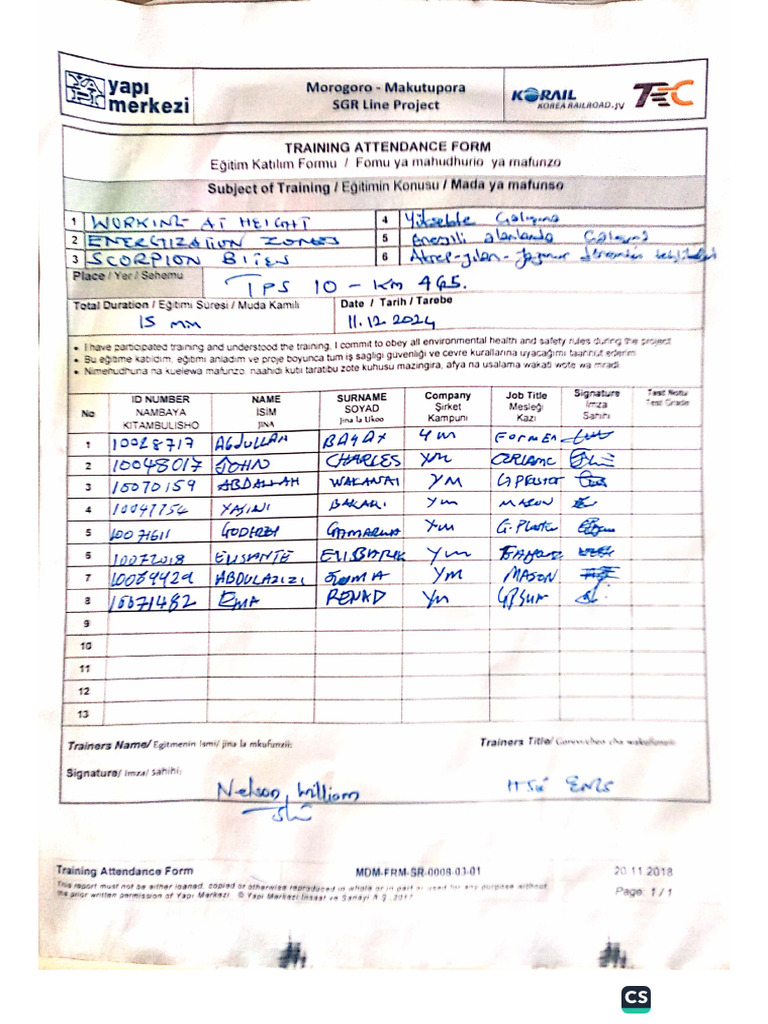 yapı merkezi
Morogoro - Makutupora
SGR Line Project
KORAIL
KOREA RAILROAD.JV
TEC
TRAINING ATTENDANCE FORM
Eğitim Katılım Formu / Fomu ya mahudhurio ya mafunzo
Subject of Training / Eğitimin Konusu / Mada ya mafunso
1 WORKING AT HEIGHT 4 Yüksekte Çalışma
2 ENERGIZATION ZONES 5 Enerjili alanlarda Çalışma
3 SCORPION BITES 6 Akrep-yılan-
Place / Yer / Sehemu
TPS 10 - Km 465.
Total Duration / Eğitimi Süresi / Muda Kamili
15 mm
Date / Tarih / Tarebe
11.12.2024
• I have participated training and understood the training, I commit to obey all environmental health and safety rules during the project
• Bu eğitime katıldım, eğitimi anladım ve proje boyunca tum iş sagligi güvenliği ve cevre kurallarına uyacağımı taahhut ederim
• Nimehudhuna na kuelewa mafunzo, naahidi kutii taratibu zote kuhusu mazingira, afya na usalama wakati wote wa mradi
No ID NUMBER NAMBAYA KITAMBULISHO NAME İSİM JINA SURNAME SOYAD Jina la Ukoo Company Şirket Kampuni Job Title Mesleği Kazi Signature Imza Sahihi Test Notu Test Grade
1 10028717 ABDULLAH Ym FORMEN
2 10048017 JOHN CHARLES Ym
3 10070159 ABDALLAH WAKANAI YM
4 YASINI BAKARI Ym MASON
5 10071611 GODFREY Ym G.Plaster
6 10072018 Ym
7 ABDULAZIZI JUMA Ym MASON
8 10071482 EMA RENAD Ym GPSUM
9
10
11
12
13
Trainers Name/ Egitmenin İsmi/ jina la mkufunzi:
Trainers Title/
Signature/ Imza/ sahihi:
Nelson William
HSE
Training Attendance Form MDM-FRM-SR-0008-03-01 20.11.2018
This report must not be either loaned, copied or otherwise reproduced in whole or in part or used for any purpose without
the prior written permission of Yapı Merkezi. © Yapı Merkezi İnşaat ve Sanayi A.Ş., 2017
Page: 1 / 1
CS